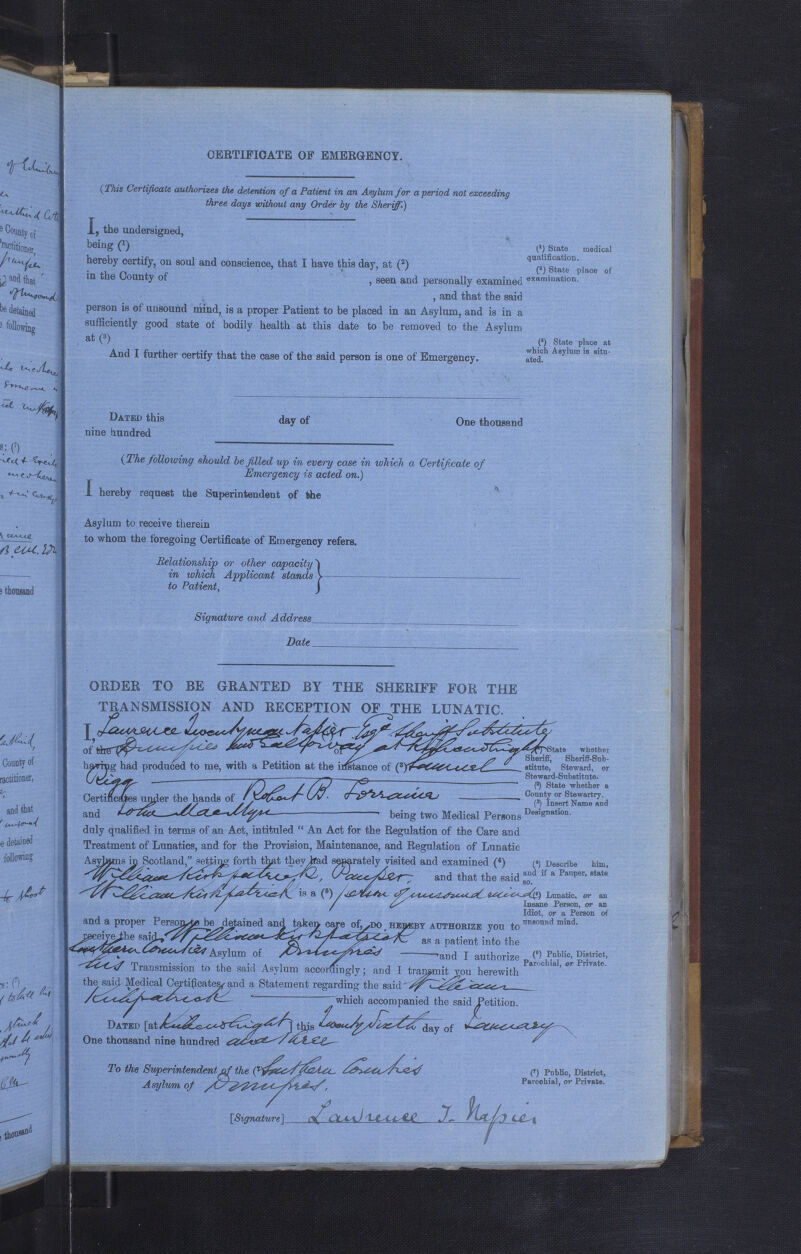 CERTIFICATE OF EMERGENCY.
(This Certificate authorizes the detention of a Patient in an Asylum for a period not exceeding
three days without any Order by the Sheriff.)
I, the undersigned,
being (¹)
hereby certify, on soul and conscience, that I have this day, at (²)
in the County of , seen and personally examined
, and that the said
person is of unsound mind, is a proper Patient to be placed in an Asylum, and is in a
sufficiently good state of bodily health at this date to be removed to the Asylum
at (³)
And I further certify that the case of the said person is one of Emergency.
(¹) State medical
qualification.
(²) State place of
examination.
(³) State place at
which Asylum is situ-
ated.
DATED this day of One thousand
nine hundred
(The following should be filled up in every case in which a Certificate of
Emergency is acted on.)
I hereby request the Superintendent of the
Asylum to receive therein
to whom the foregoing Certificate of Emergency refers.
Relationship or other capacity
in which Applicant stands
to Patient,
Signature and Address
Date
ORDER TO BE GRANTED BY THE SHERIFF FOR THE
TRANSMISSION AND RECEPTION OF THE LUNATIC.
I, Lawrence Twentyman Napier Esqr. Sheriff Substitute
of the (¹) Dumfries and Galloway of at Kirkcudbright
having had produced to me, with a Petition at the instance of (²) Samuel
Rigg
Certificates under the hands of Robert B. Lorraine
and John MacMyn being two Medical Persons
duly qualified in terms of an Act, intituled "An Act for the Regulation of the Care and
Treatment of Lunatics, and for the Provision, Maintenance, and Regulation of Lunatic
Asylums in Scotland," setting forth that they had separately visited and examined (⁴)
William Kirkpatrick, Pauper, and that the said
William Kirkpatrick is a (⁵) person of unsound mind
and a proper Person to be detained and taken care of, DO HEREBY AUTHORIZE you to
receive the said William Kirkpatrick as a patient into the
Southern Counties Asylum of Dumfries and I authorize
his Transmission to the said Asylum accordingly; and I transmit you herewith
the said Medical Certificates, and a Statement regarding the said William
Kirkpatrick which accompanied the said Petition.
DATED [at Kirkcudbright] this Twenty Sixth day of January
One thousand nine hundred and three
To the Superintendent of the (⁷) Southern Counties
Asylum of Dumfries.
[Signature] Lawrence T. Napier
(¹) State whether
Sheriff, Sheriff-Sub-
stitute, Steward, or
Steward-Substitute.
(²) State whether a
County or Stewartry.
(³) Insert Name and
Designation.
(⁴) Describe him,
and if a Pauper, state
so.
(⁵) Lunatic, or an
Insane Person, or an
Idiot, or a Person of
unsound mind.
(⁶) Public, District,
Parochial, or Private.
(⁷) Public, District,
Parochial, or Private.